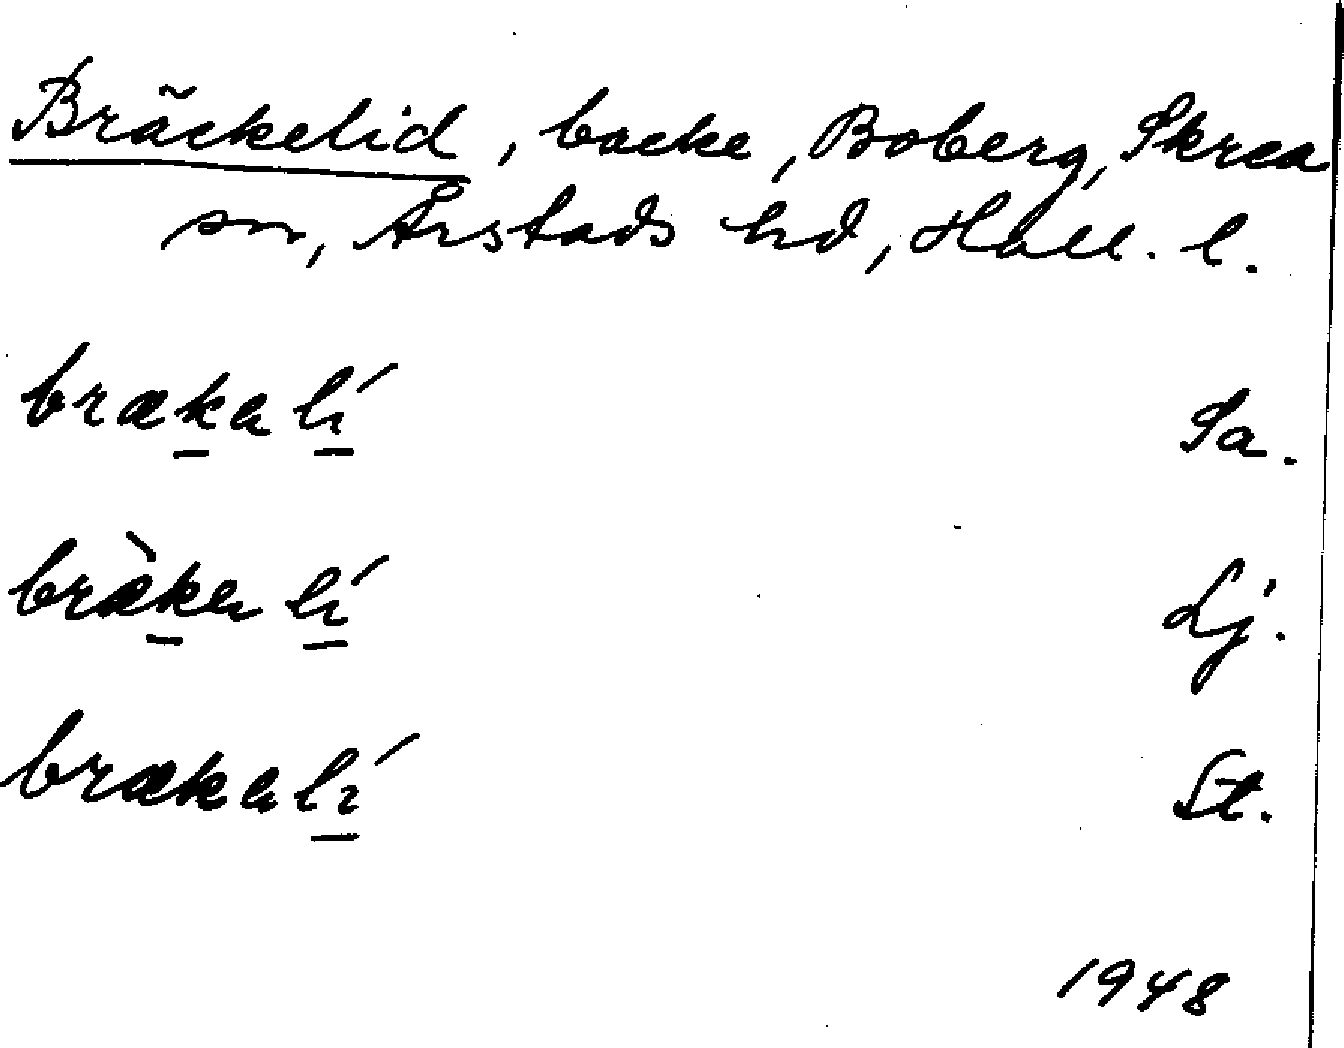 Bräckelid, backe, Boberg, Skrea
sn, Årstads hd, Hall. l.
brækalí Sa.
bræ̀kalí Lj.
brækalí St.
1948